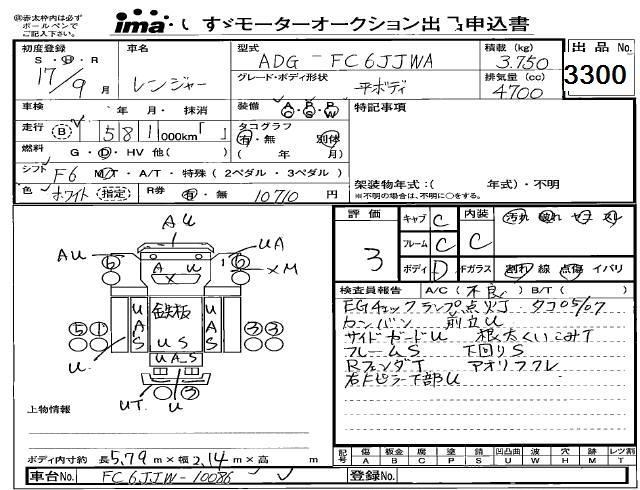 ㊟赤太枠内は必ず
ボールペンで
ご記入下さい。
ima・いすゞモーターオークション出品申込書
初度登録
S・H・R
17/9 月
車名
レンジャー
型式
ADG - FC6JJWA
グレード・ボディ形状
平ボディ
積載 (kg)
3.750
排気量 (cc)
4700
出品 No.
3300
車検 年 月・抹消
装備 A/C P/S P/W
特記事項
走行 (B) 5 8 1 000km「 」
タコグラフ
有・無 別体
( 年 月)
燃料 G・D・HV 他( )
シフト F6 M/T・A/T・特殊(2ペダル・3ペダル)
架装物年式:( 年式)・不明
※不明の場合は、不明に○をする。
色 ホワイト (指定) R券 有・無 10710 円
評価
3
キャブ C
フレーム C
ボディ D
内装 C
汚れ 破れ ヤコ スレ
Fガラス 割れ 線 点傷 イバリ
AU
AU
UA
×M
6
1
6
A U
X
UAS
鉄板
UAS
U S
5 1
3 3
U
U A S
UT
U
検査員報告 A/C( 不良 ) B/T( )
EGチェックランプ点灯 タコ05/07
カンバン 前立U
サイドガードU 根太くいこみT
フレームS 下回りS
RフェンダT アオリフクレ
右Fピラー下部U
上物情報
ボディ内寸約 長 5.79 m × 幅 2.14 m × 高 m
記号 傷 板金 腐 塗 錆 凹凸曲 波 穴 跡 レツ割
A B C P S U W H M T
車台No. FC6JJW-10086
登録No.